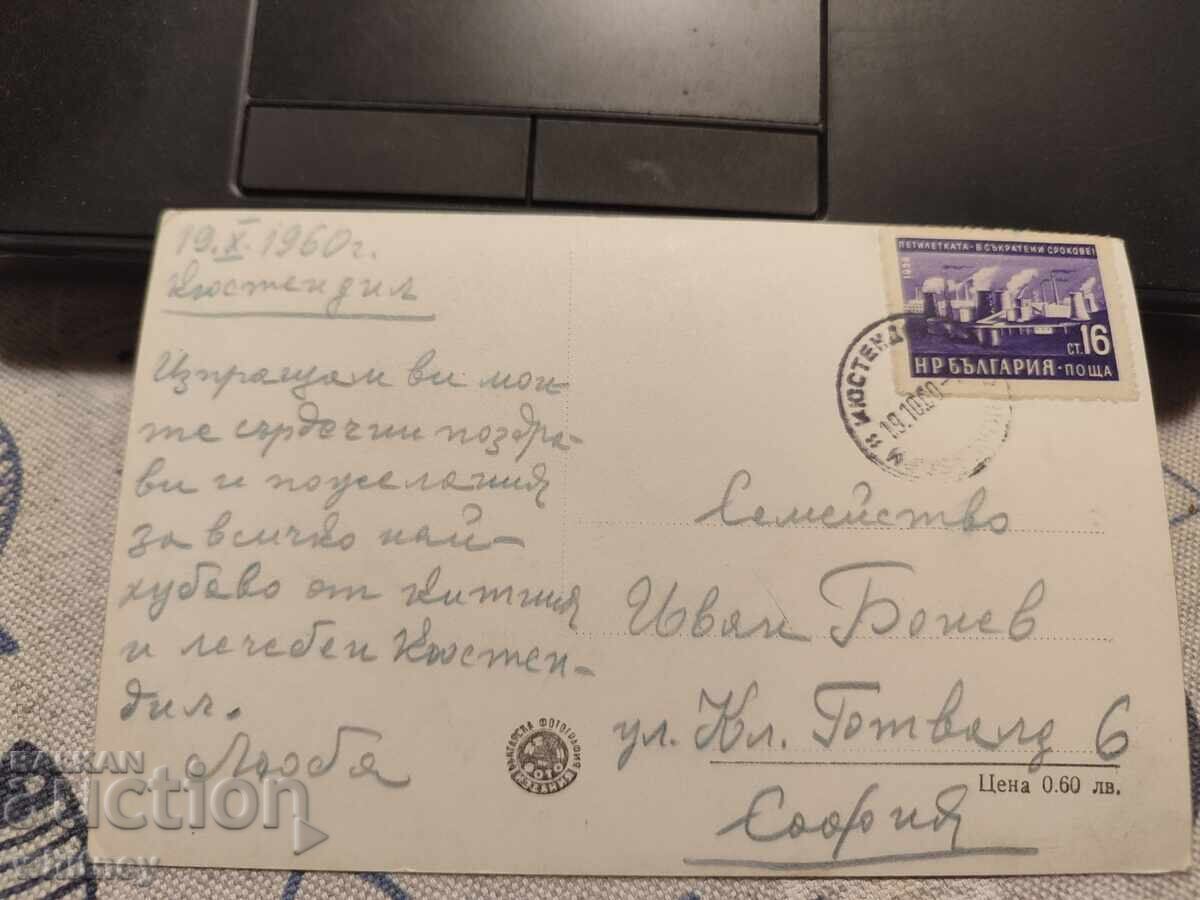 19.X.1960г.
Кюстендил
Изпращам ви мои-
те сърдечни поздра-
ви и пожелания
за всичко най-
хубаво от китния
и лечебен Кюстен-
дил.
Люба
ПЕТИЛЕТКАТА - В СЪКРАТЕНИ СРОКОВЕ!
СТ. 16
НР БЪЛГАРИЯ · ПОЩА
19.10.60
Семейство
Иван Бонев
ул. Кл. Готвалд 6
Цена 0.60 лв.
София
БЪЛГАРСКА ФОТОГРАФИЯ
BALKAN
auction
whinney